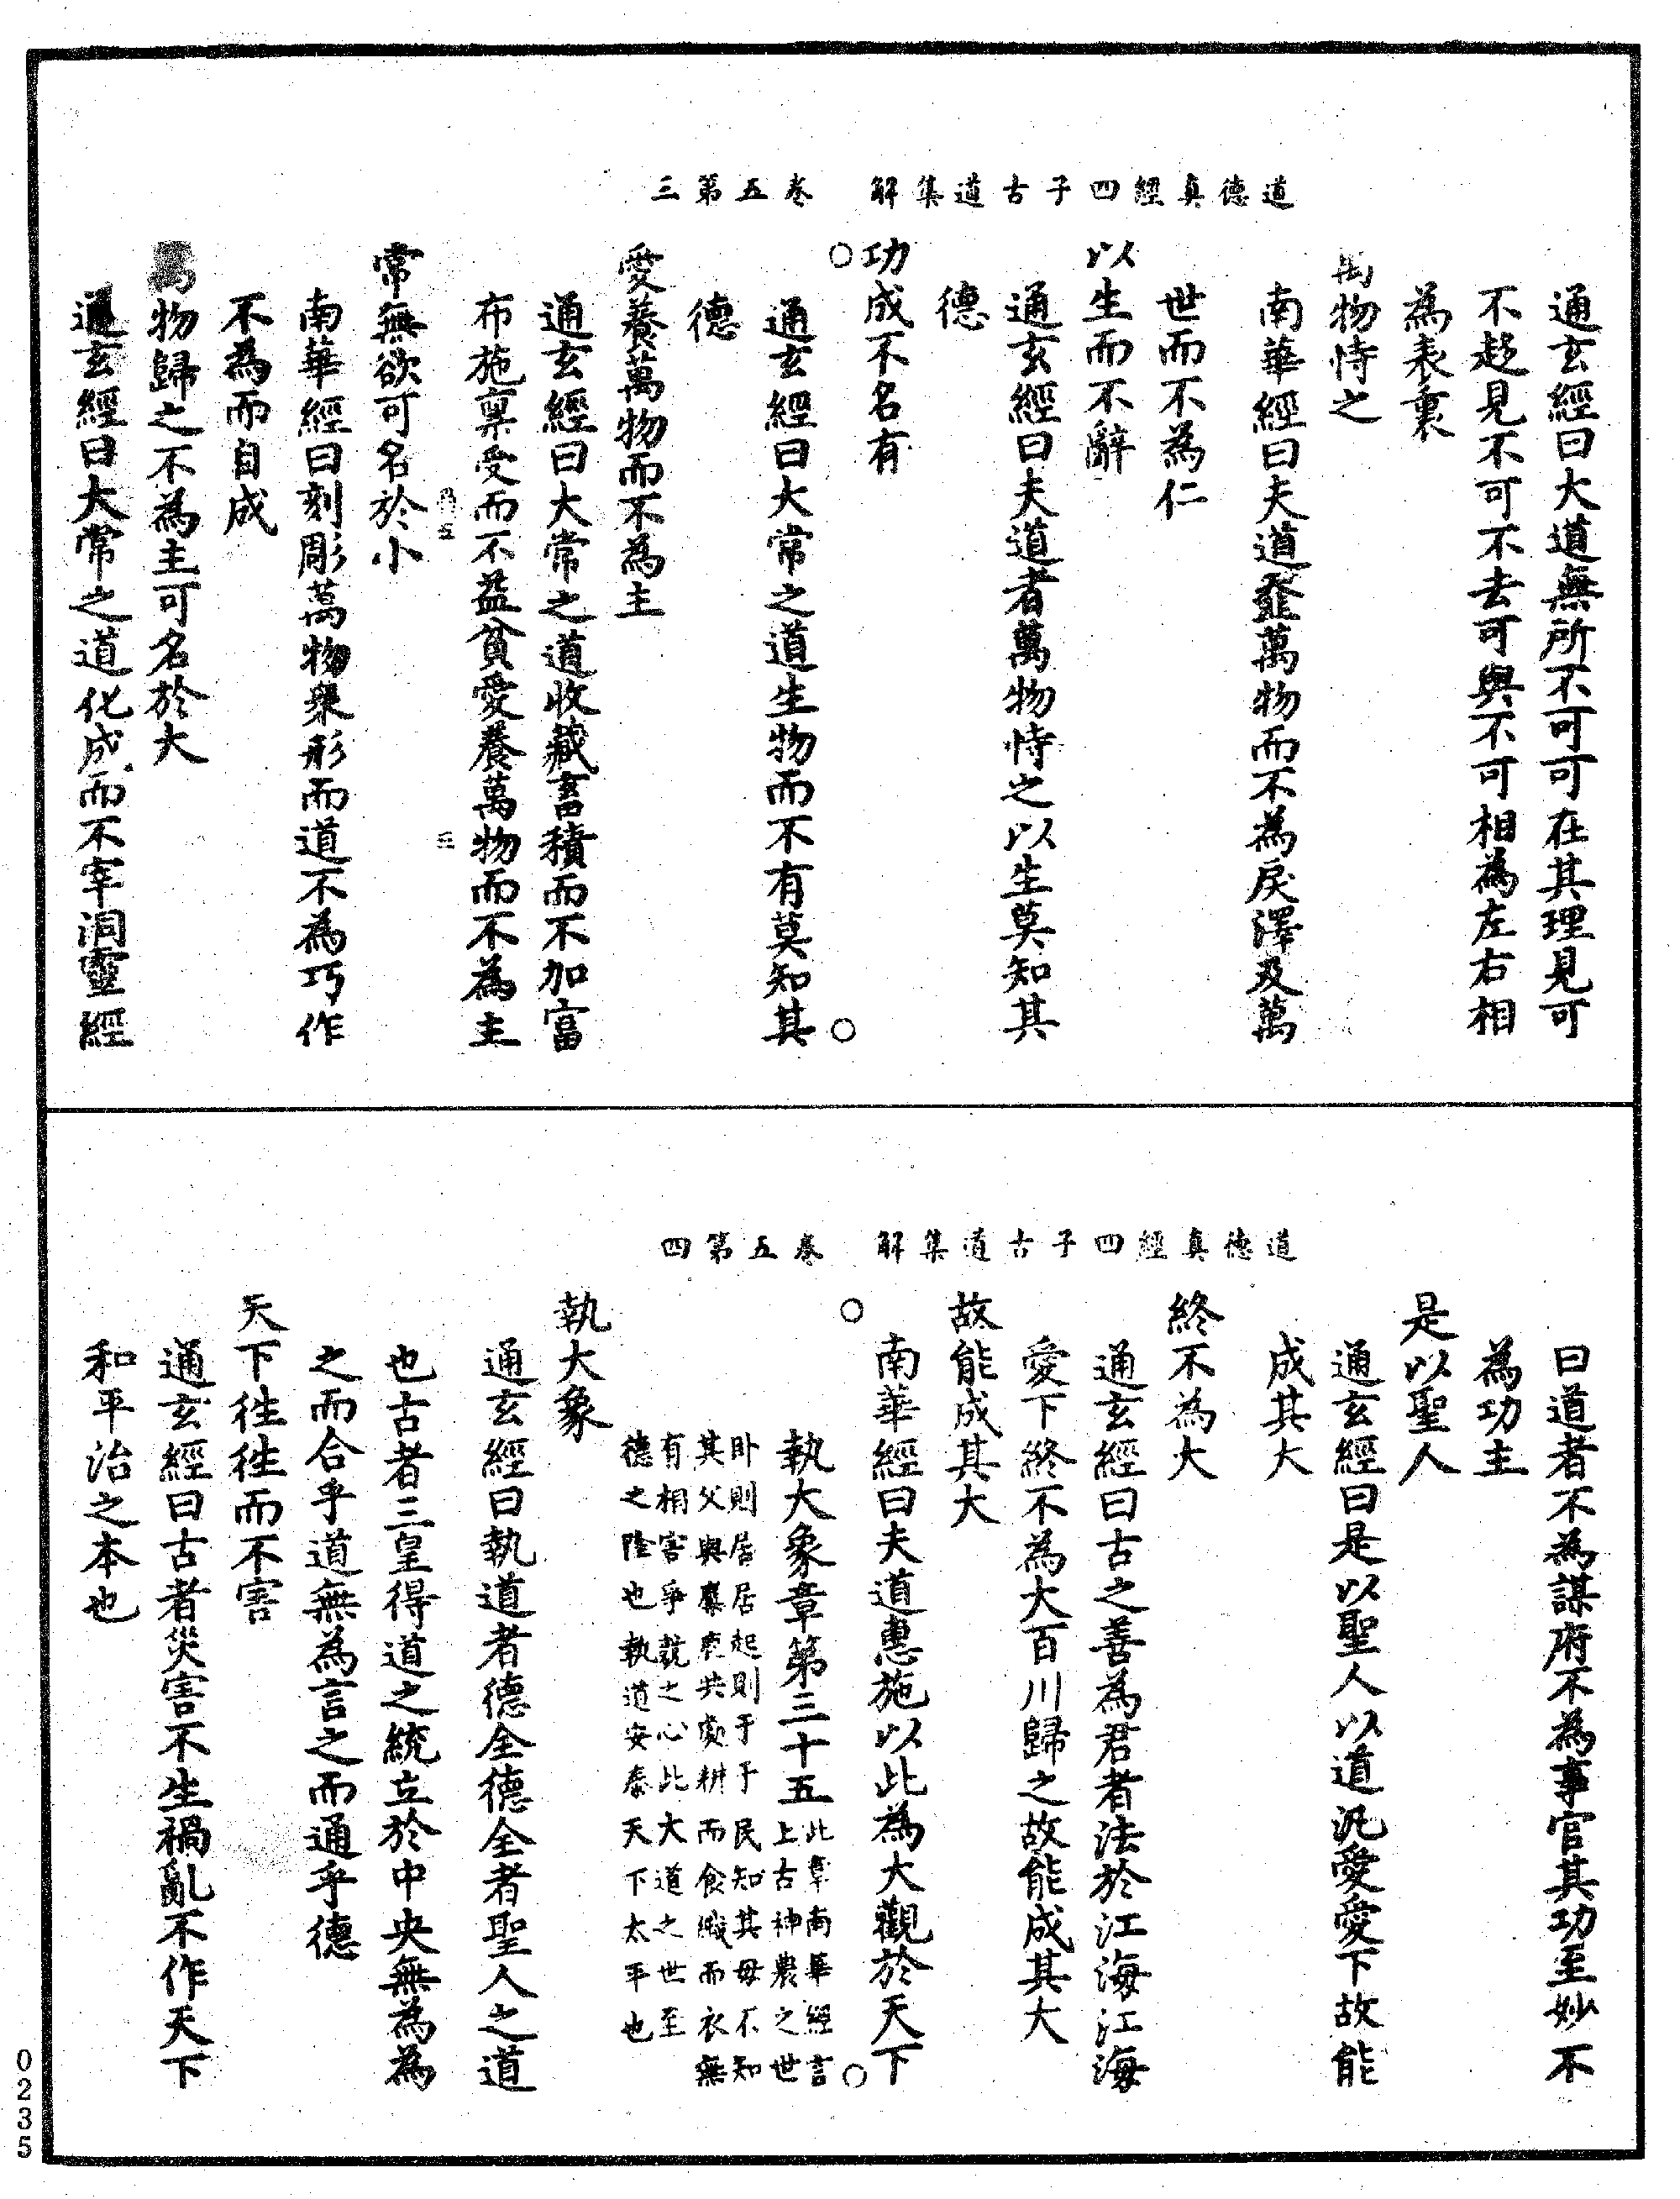 道德真經四子古道集解　卷五第三
通玄經曰大道無所不可可在其理見可
不趍見不可不去可與不可相為左右相
為表裏
萬物恃之
南華經曰夫道韲萬物而不為戾澤及萬
世而不為仁
以生而不辭
通玄經曰夫道者萬物恃之以生莫知其
德
功成不名有
通玄經曰大常之道生物而不有莫知其
德
愛養萬物而不為主
通玄經曰大常之道收藏畜積而不加富
布施稟受而不益貧愛養萬物而不為主
常無欲可名於小
南華經曰刻彫萬物衆形而道不為巧作
不為而自成
萬物歸之不為主可名於大
通玄經曰大常之道化成而不宰洞靈經
道德真經四子古道集解　卷五第四
曰道者不為謀府不為事官其功至妙不
為功主
是以聖人
通玄經曰是以聖人以道汎愛愛下故能
成其大
終不為大
通玄經曰古之善為君者法於江海江海
愛下終不為大百川歸之故能成其大
故能成其大
南華經曰夫道惠施以此為大觀於天下
執大象章第三十五
此章南華經言
上古神農之世
卧則居居起則于于民知其母不知
其父與麋鹿共處耕而食織而衣無
有相害爭競之心此大道之世至
德之隆也執道安泰天下太平也
執大象
通玄經曰執道者德全德全者聖人之道
也古者三皇得道之統立於中央無為為
之而合乎道無為言之而通乎德
天下徃徃而不害
通玄經曰古者災害不生禍亂不作天下
和平治之本也
0235